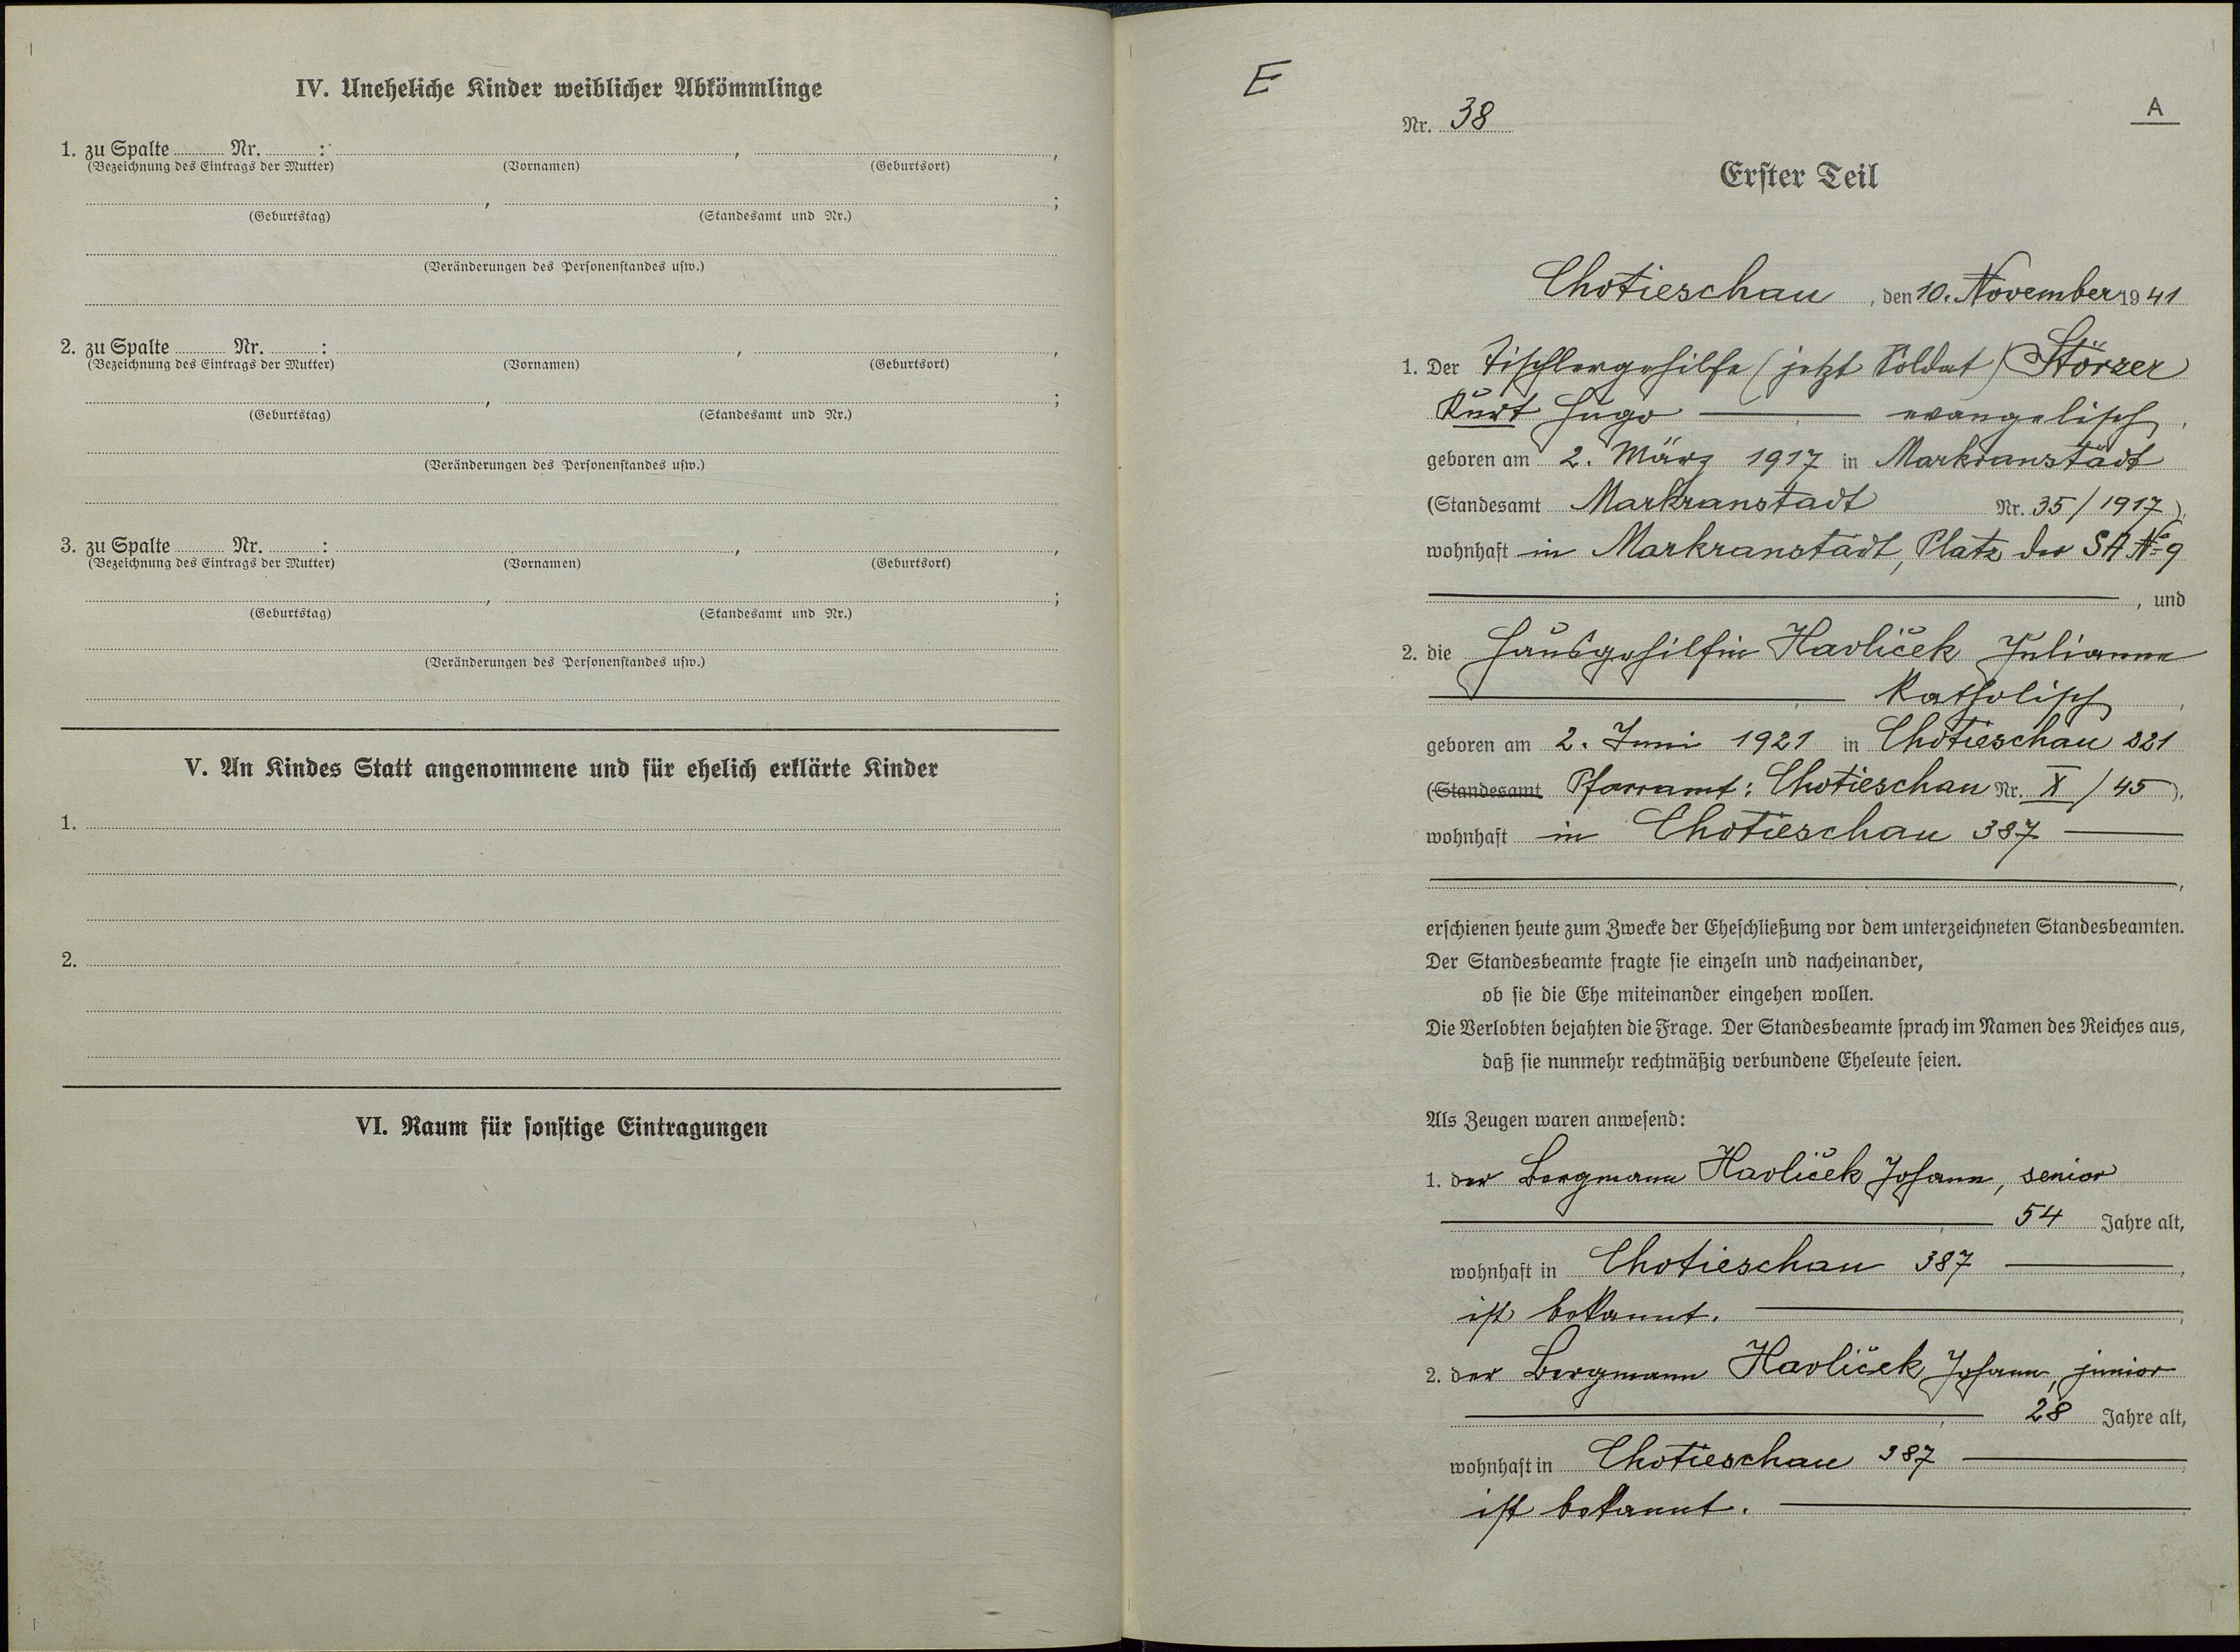 IV. Uneheliche Kinder weiblicher Abkömmlinge
1. zu Spalte Nr. : , ,
(Bezeichnung des Eintrags der Mutter) (Vornamen) (Geburtsort)
, ;
(Geburtstag) (Standesamt und Nr.)
(Veränderungen des Personenstandes usw.)
2. zu Spalte Nr. : , ,
(Bezeichnung des Eintrags der Mutter) (Vornamen) (Geburtsort)
, ;
(Geburtstag) (Standesamt und Nr.)
(Veränderungen des Personenstandes usw.)
3. zu Spalte Nr. : , ,
(Bezeichnung des Eintrags der Mutter) (Vornamen) (Geburtsort)
, ;
(Geburtstag) (Standesamt und Nr.)
(Veränderungen des Personenstandes usw.)
V. An Kindes Statt angenommene und für ehelich erklärte Kinder
1.
2.
VI. Raum für sonstige Eintragungen
E
A
Nr. 38
Erster Teil
Chotieschau, den 10. November 1941
1. Der Tischlergehilfe (jetzt Soldat) Störzer
Kurt Hugo evangelisch,
geboren am 2. März 1917 in Markranstädt
(Standesamt Markranstädt Nr. 35/1917),
wohnhaft in Markranstädt, Platz der SA № 9
, und
2. die Hausgehilfin Havliček Julianna
katholisch,
geboren am 2. Juni 1921 in Chotieschau 321
(Standesamt Pfarramt: Chotieschau Nr. X/45),
wohnhaft in Chotieschau 387
,
erschienen heute zum Zwecke der Eheschließung vor dem unterzeichneten Standesbeamten.
Der Standesbeamte fragte sie einzeln und nacheinander,
ob sie die Ehe miteinander eingehen wollen.
Die Verlobten bejahten die Frage. Der Standesbeamte sprach im Namen des Reiches aus,
daß sie nunmehr rechtmäßig verbundene Eheleute seien.
Als Zeugen waren anwesend:
1. der Bergmann Havliček Johann, senior
, 54 Jahre alt,
wohnhaft in Chotieschau 387,
ist bekannt.
2. der Bergmann Havliček Johann, junior
, 28 Jahre alt,
wohnhaft in Chotieschau 387
ist bekannt.